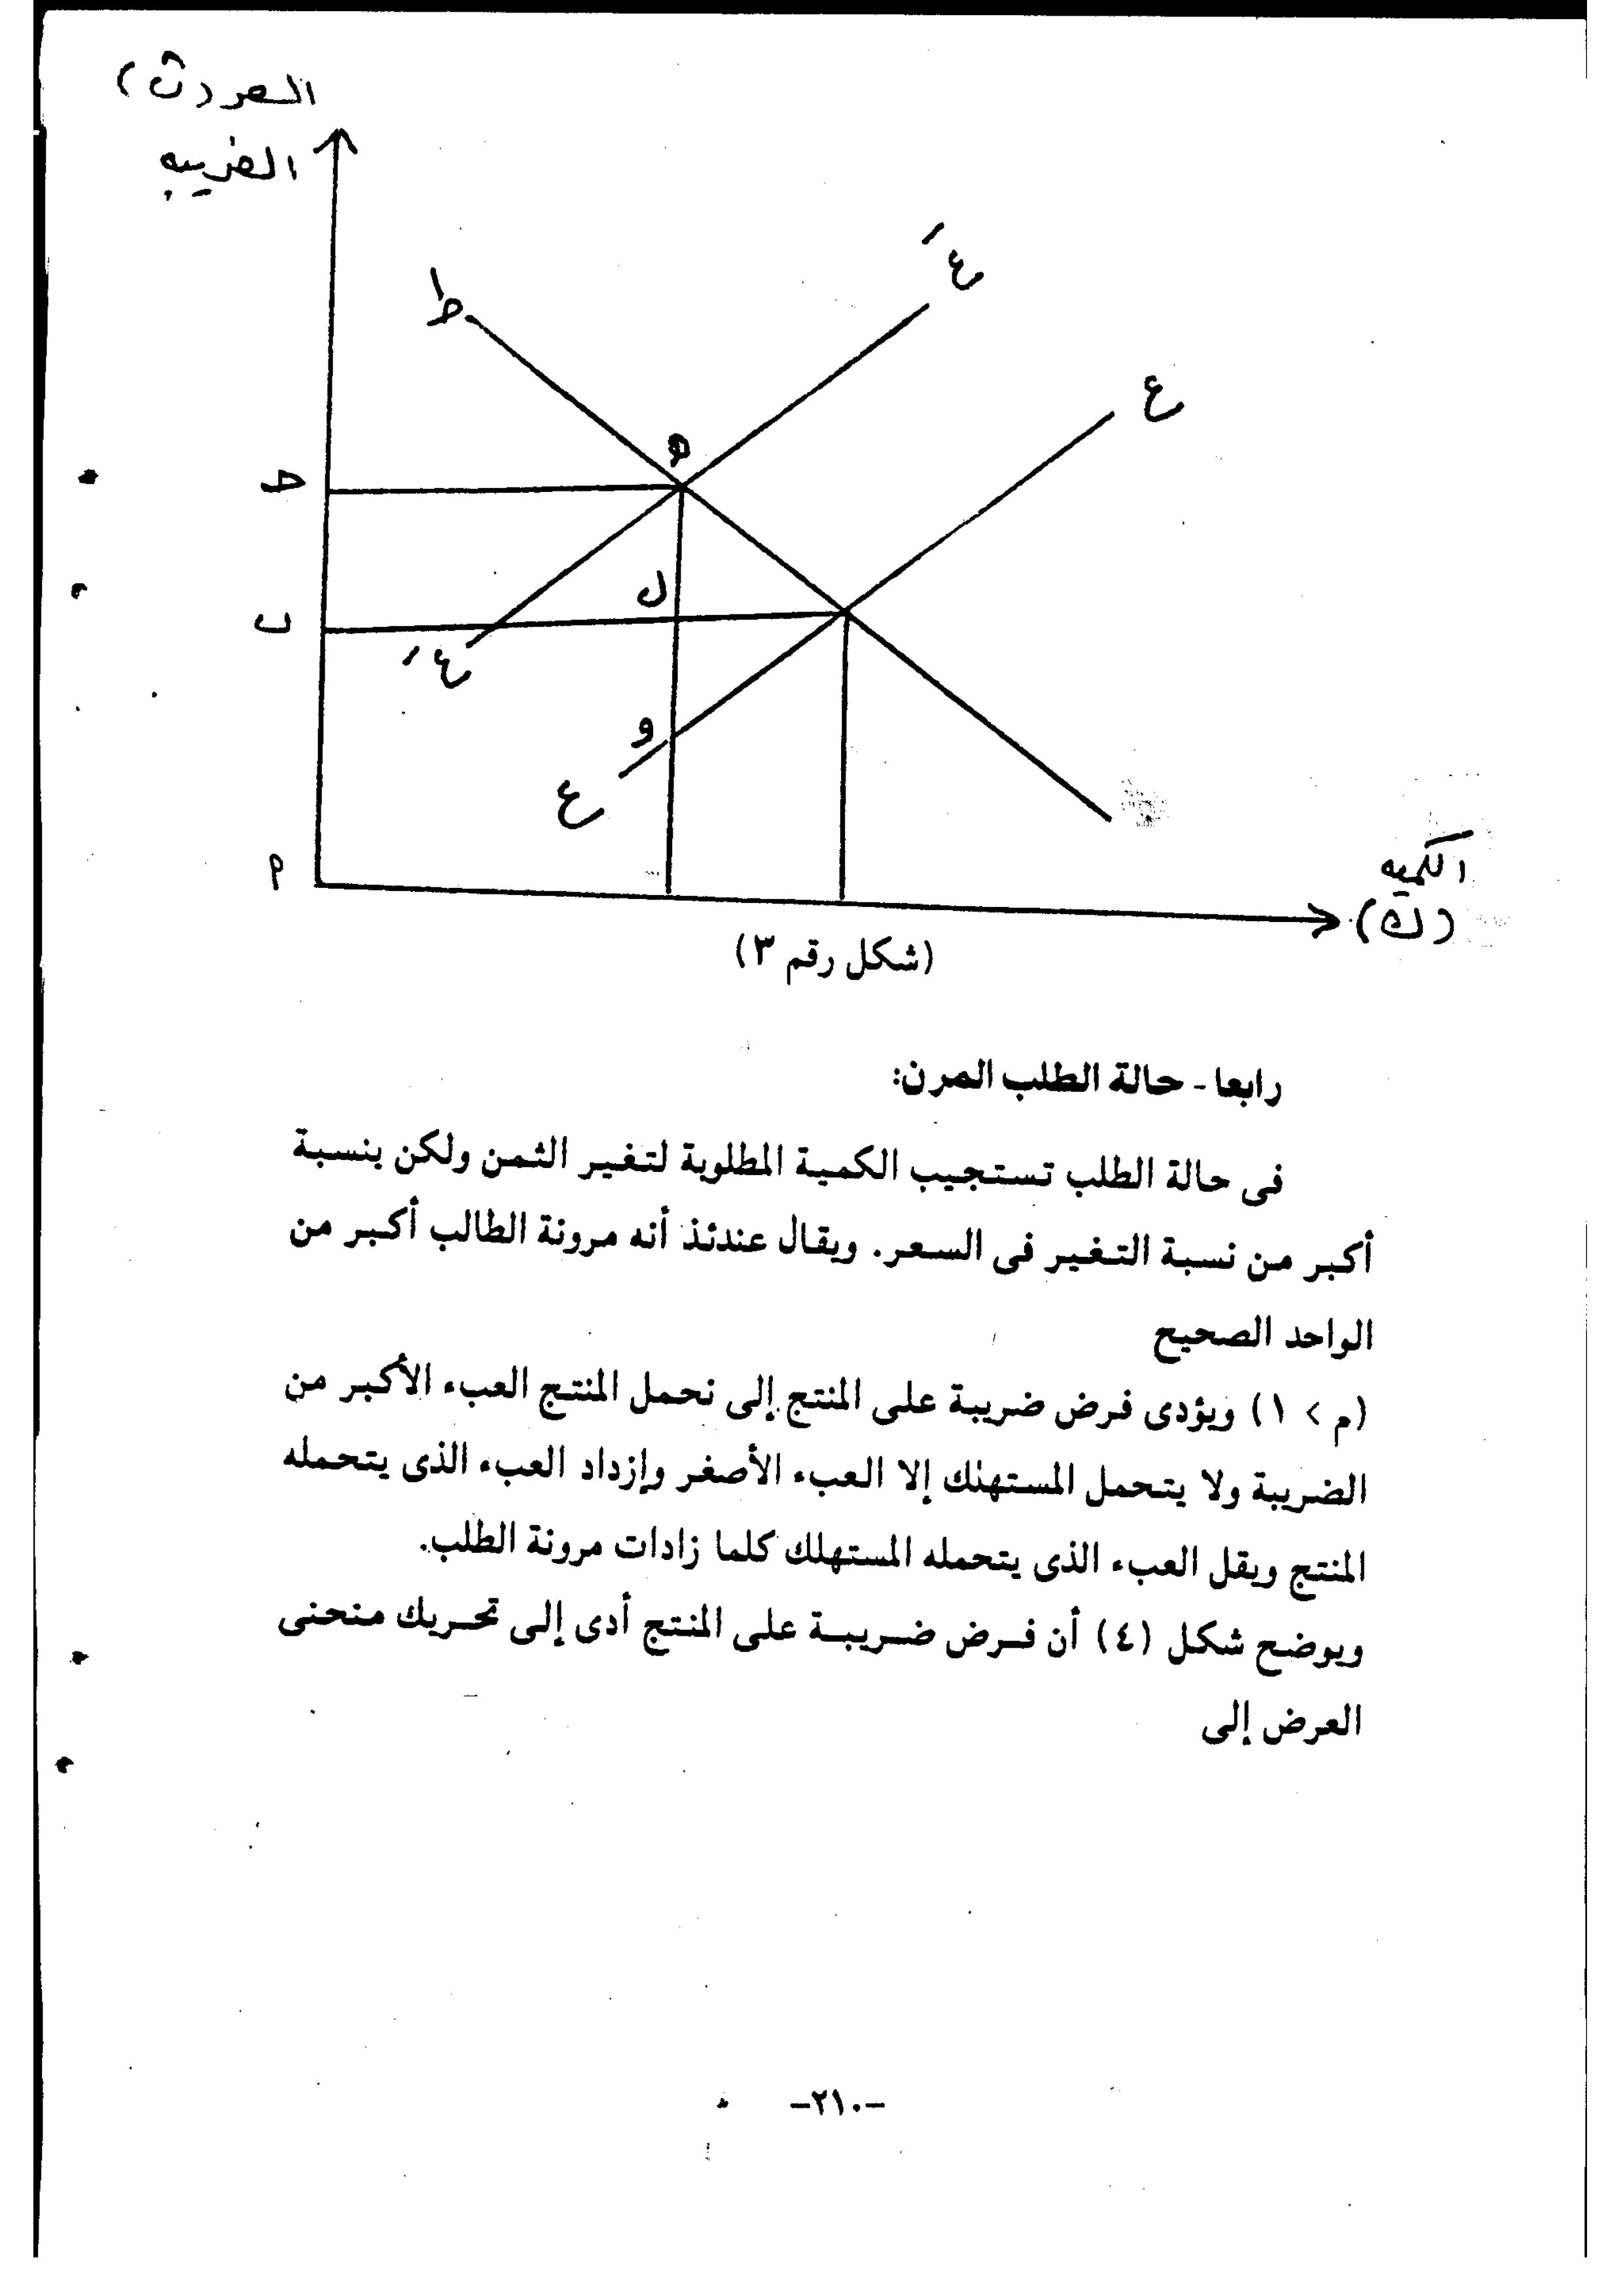 السعر (ث)
الضريبه
عَ
ط
ع
هـ
حـ
ل
ب
عَ
و
ع
م
الكميه
(ك)
(شكل رقم ٣)
رابعا - حالة الطلب المرن:
فى حالة الطلب تستجيب الكمية المطلوبة لتغير الثمن ولكن بنسبة
أكبر من نسبة التغير فى السعر. ويقال عندئذ أنه مرونة الطالب أكبر من
الواحد الصحيح
(م > ١) ويؤدى فرض ضريبة على المنتج إلى نحمل المنتج العبء الأكبر من
الضريبة ولا يتحمل المستهلك إلا العبء الأصغر وإزداد العبء الذى يتحمله
المنتج ويقل العبء الذى يتحمله المستهلك كلما زادات مرونة الطلب.
ويوضح شكل (٤) أن فرض ضريبة على المنتج أدى إلى تحريك منحنى
العرض إلى
-٢١٠-